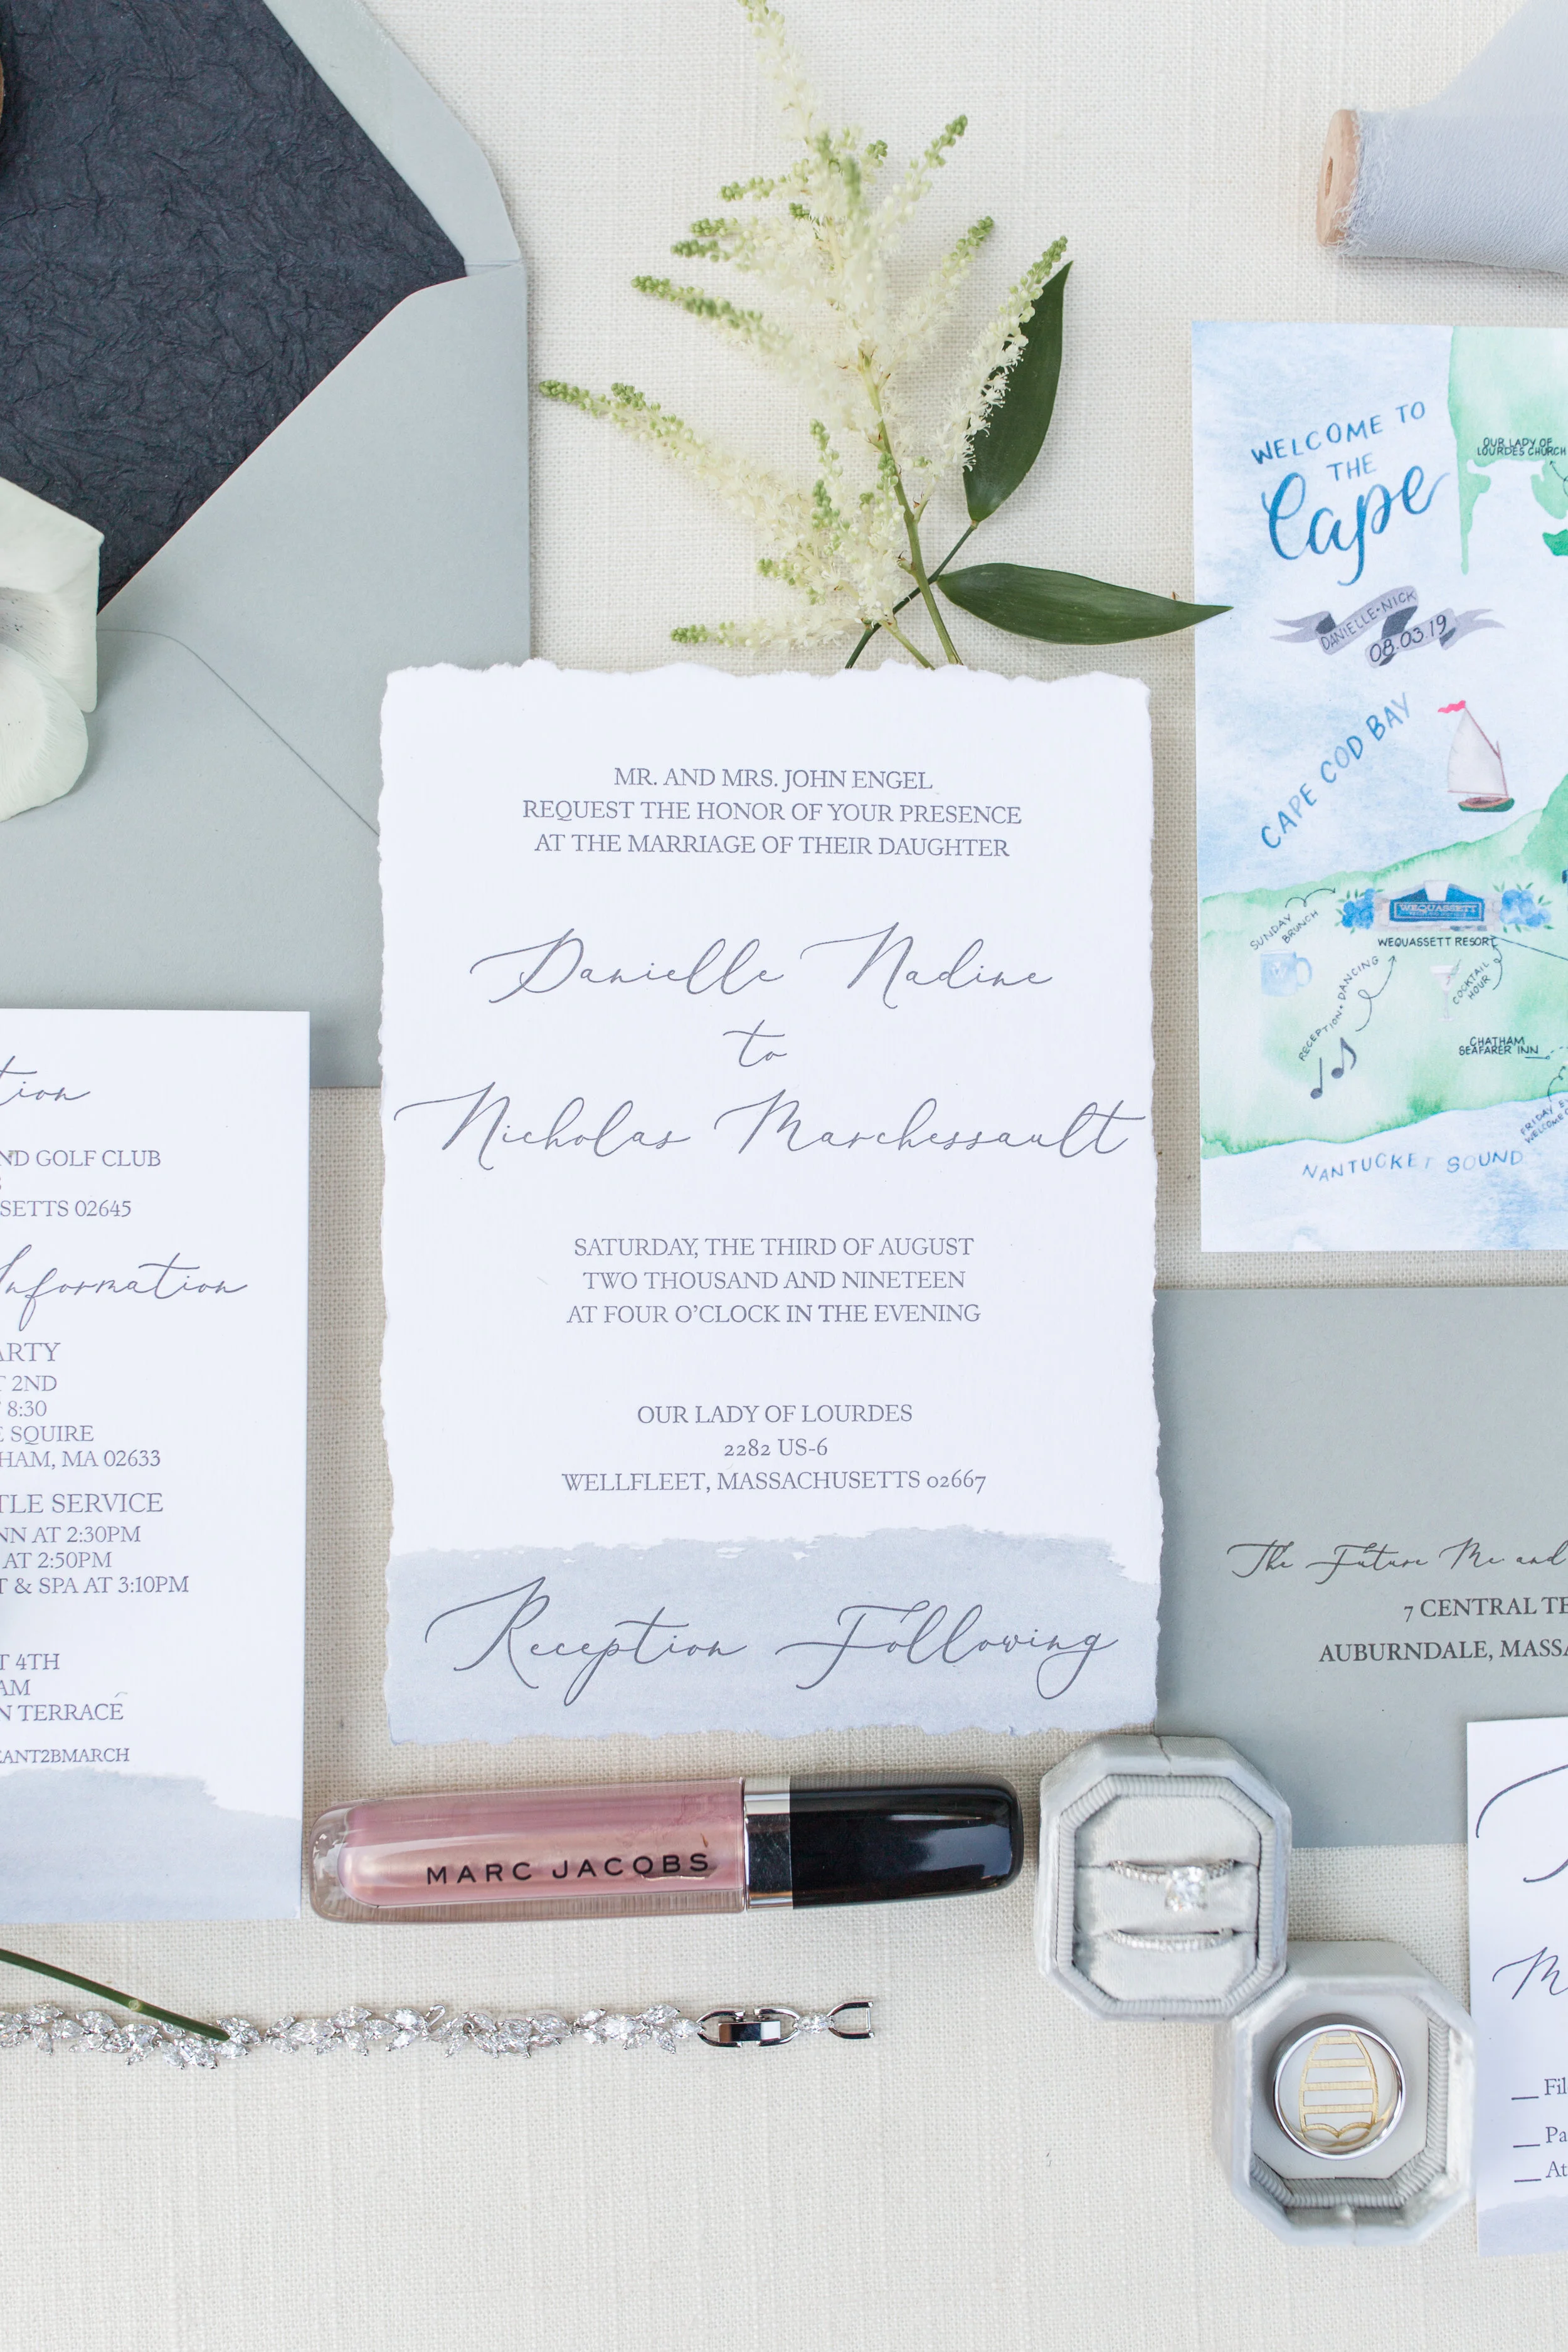 MR. AND MRS. JOHN ENGEL
REQUEST THE HONOR OF YOUR PRESENCE
AT THE MARRIAGE OF THEIR DAUGHTER
Danielle Nadine
to
Nicholas Marchessault
SATURDAY, THE THIRD OF AUGUST
TWO THOUSAND AND NINETEEN
AT FOUR O'CLOCK IN THE EVENING
OUR LADY OF LOURDES
2282 US-6
WELLFLEET, MASSACHUSETTS 02667
Reception Following
WELCOME TO
THE
Cape
OUR LADY OF
LOURDES CHURCH
DANIELLE + NICK
08.03.19
CAPE COD BAY
SUNDAY
BRUNCH
WEQUASSETT
WEQUASSETT RESORT
RECEPTION + DANCING
COCKTAIL
HOUR
CHATHAM
SEAFARER INN
FRIDAY
NANTUCKET SOUND
tion
ND GOLF CLUB
SETTS 02645
Information
ARTY
T 2ND
8:30
E SQUIRE
HAM, MA 02633
TLE SERVICE
NN AT 2:30PM
AT 2:50PM
T & SPA AT 3:10PM
T 4TH
AM
N TERRACE
ANT2BMARCH
The Future Mr. and
7 CENTRAL TE
AUBURNDALE, MASSA
MARC JACOBS
M
__ Fil
__ Pa
__ At